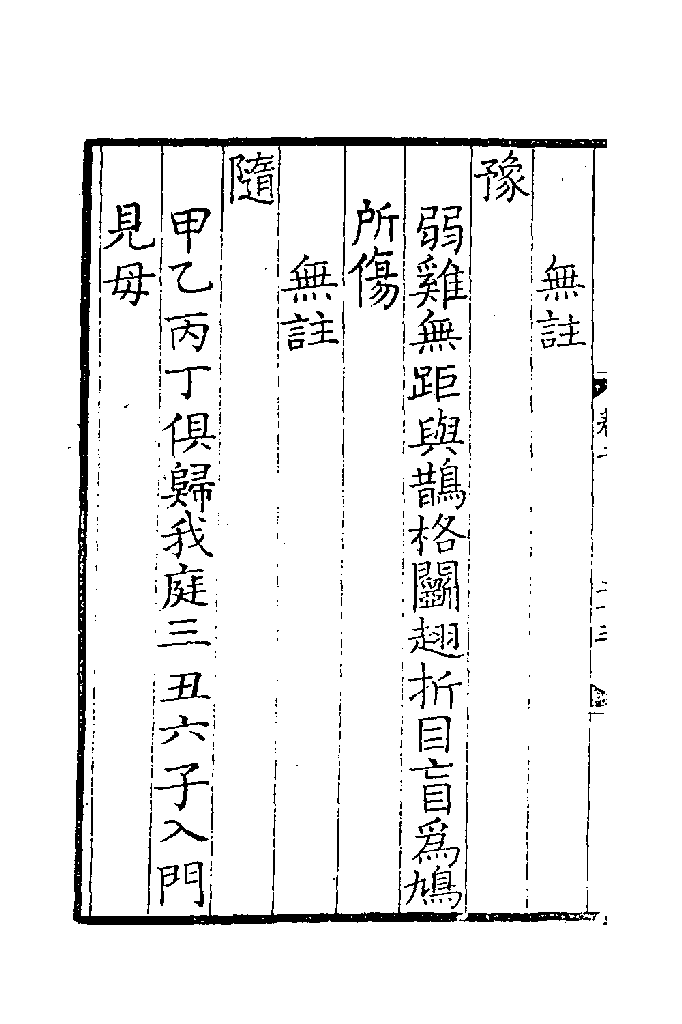 無註
豫
弱雞無距與鵲格鬭翅折目盲爲鳩
所傷
無註
隨
甲乙丙丁俱歸我庭三丑六子入門
見母